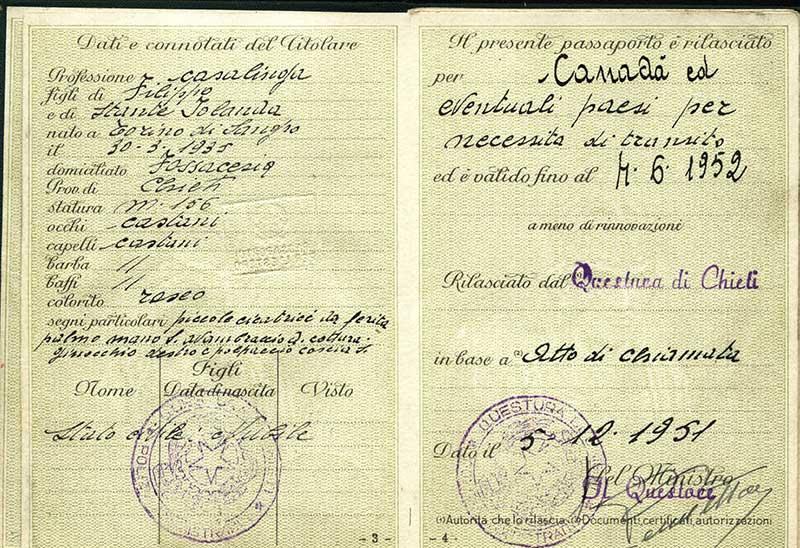 Dati e connotati del Titolare
Professione casalinga
figli di Filippo
e di Stante Iolanda
nato a Torino di Sangro
il 30-3-1935
domiciliato Fossacesia
Prov. di Chieti
statura m. 156
occhi castani
capelli castani
barba //
baffi //
colorito roseo
segni particolari piccole cicatrici da ferita
palmo mano S. avambraccio D. cottura
ginocchio destro e polpaccio coscia S.
Figli
Nome Data di nascita Visto
Stato civile: nubile
- 3 -
Il presente passaporto è rilasciato
per Canadà ed
eventuali paesi per
necessità di transito
ed è valido fino al 4.6.1952
a meno di rinnovazione
Rilasciato dal Questura di Chieti
in base a Atto di chiamata
Dato il 5 12. 1951
Pel Ministro
Il Questore
QUESTURA
(1) Autorità che lo rilascia (2) Documenti, certificati, autorizzazioni
- 4 -